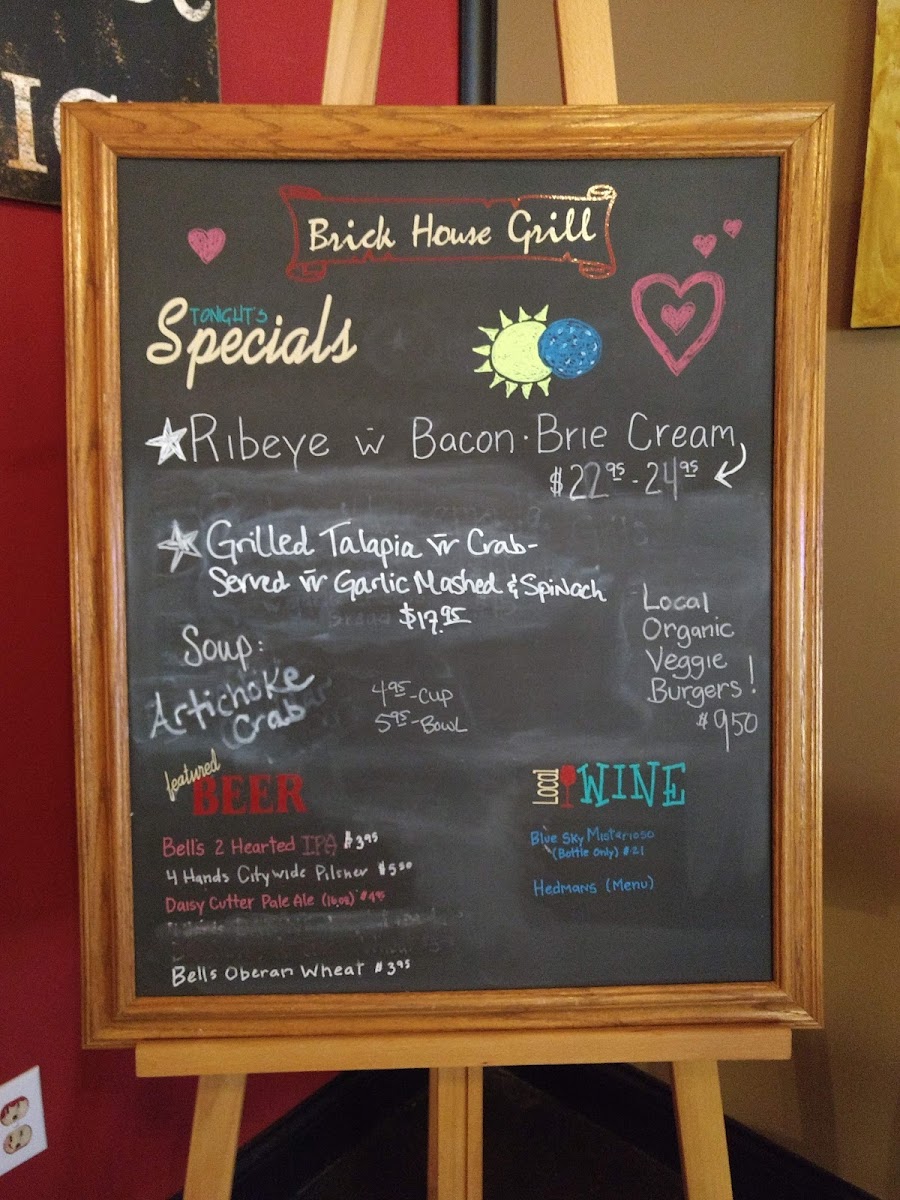 Brick House Grill
TONIGHT'S
Specials
Ribeye w̄ Bacon·Brie Cream
$22.95 - 24.95
Grilled Talapia w̄ Crab-
Served w̄ Garlic Mashed & Spinach
$17.95
Local
Organic
Veggie
Burgers!
$9.50
Soup:
Artichoke
Crab
4.95-Cup
5.95-Bowl
featured
BEER
Bell's 2 Hearted IPA $3.95
4 Hands Citywide Pilsner $5.50
Daisy Cutter Pale Ale (16oz) $4.95
Bells Oberan Wheat $3.95
Local WINE
Blue Sky Mistarioso
(Bottle Only) $21
Hedmans (Menu)